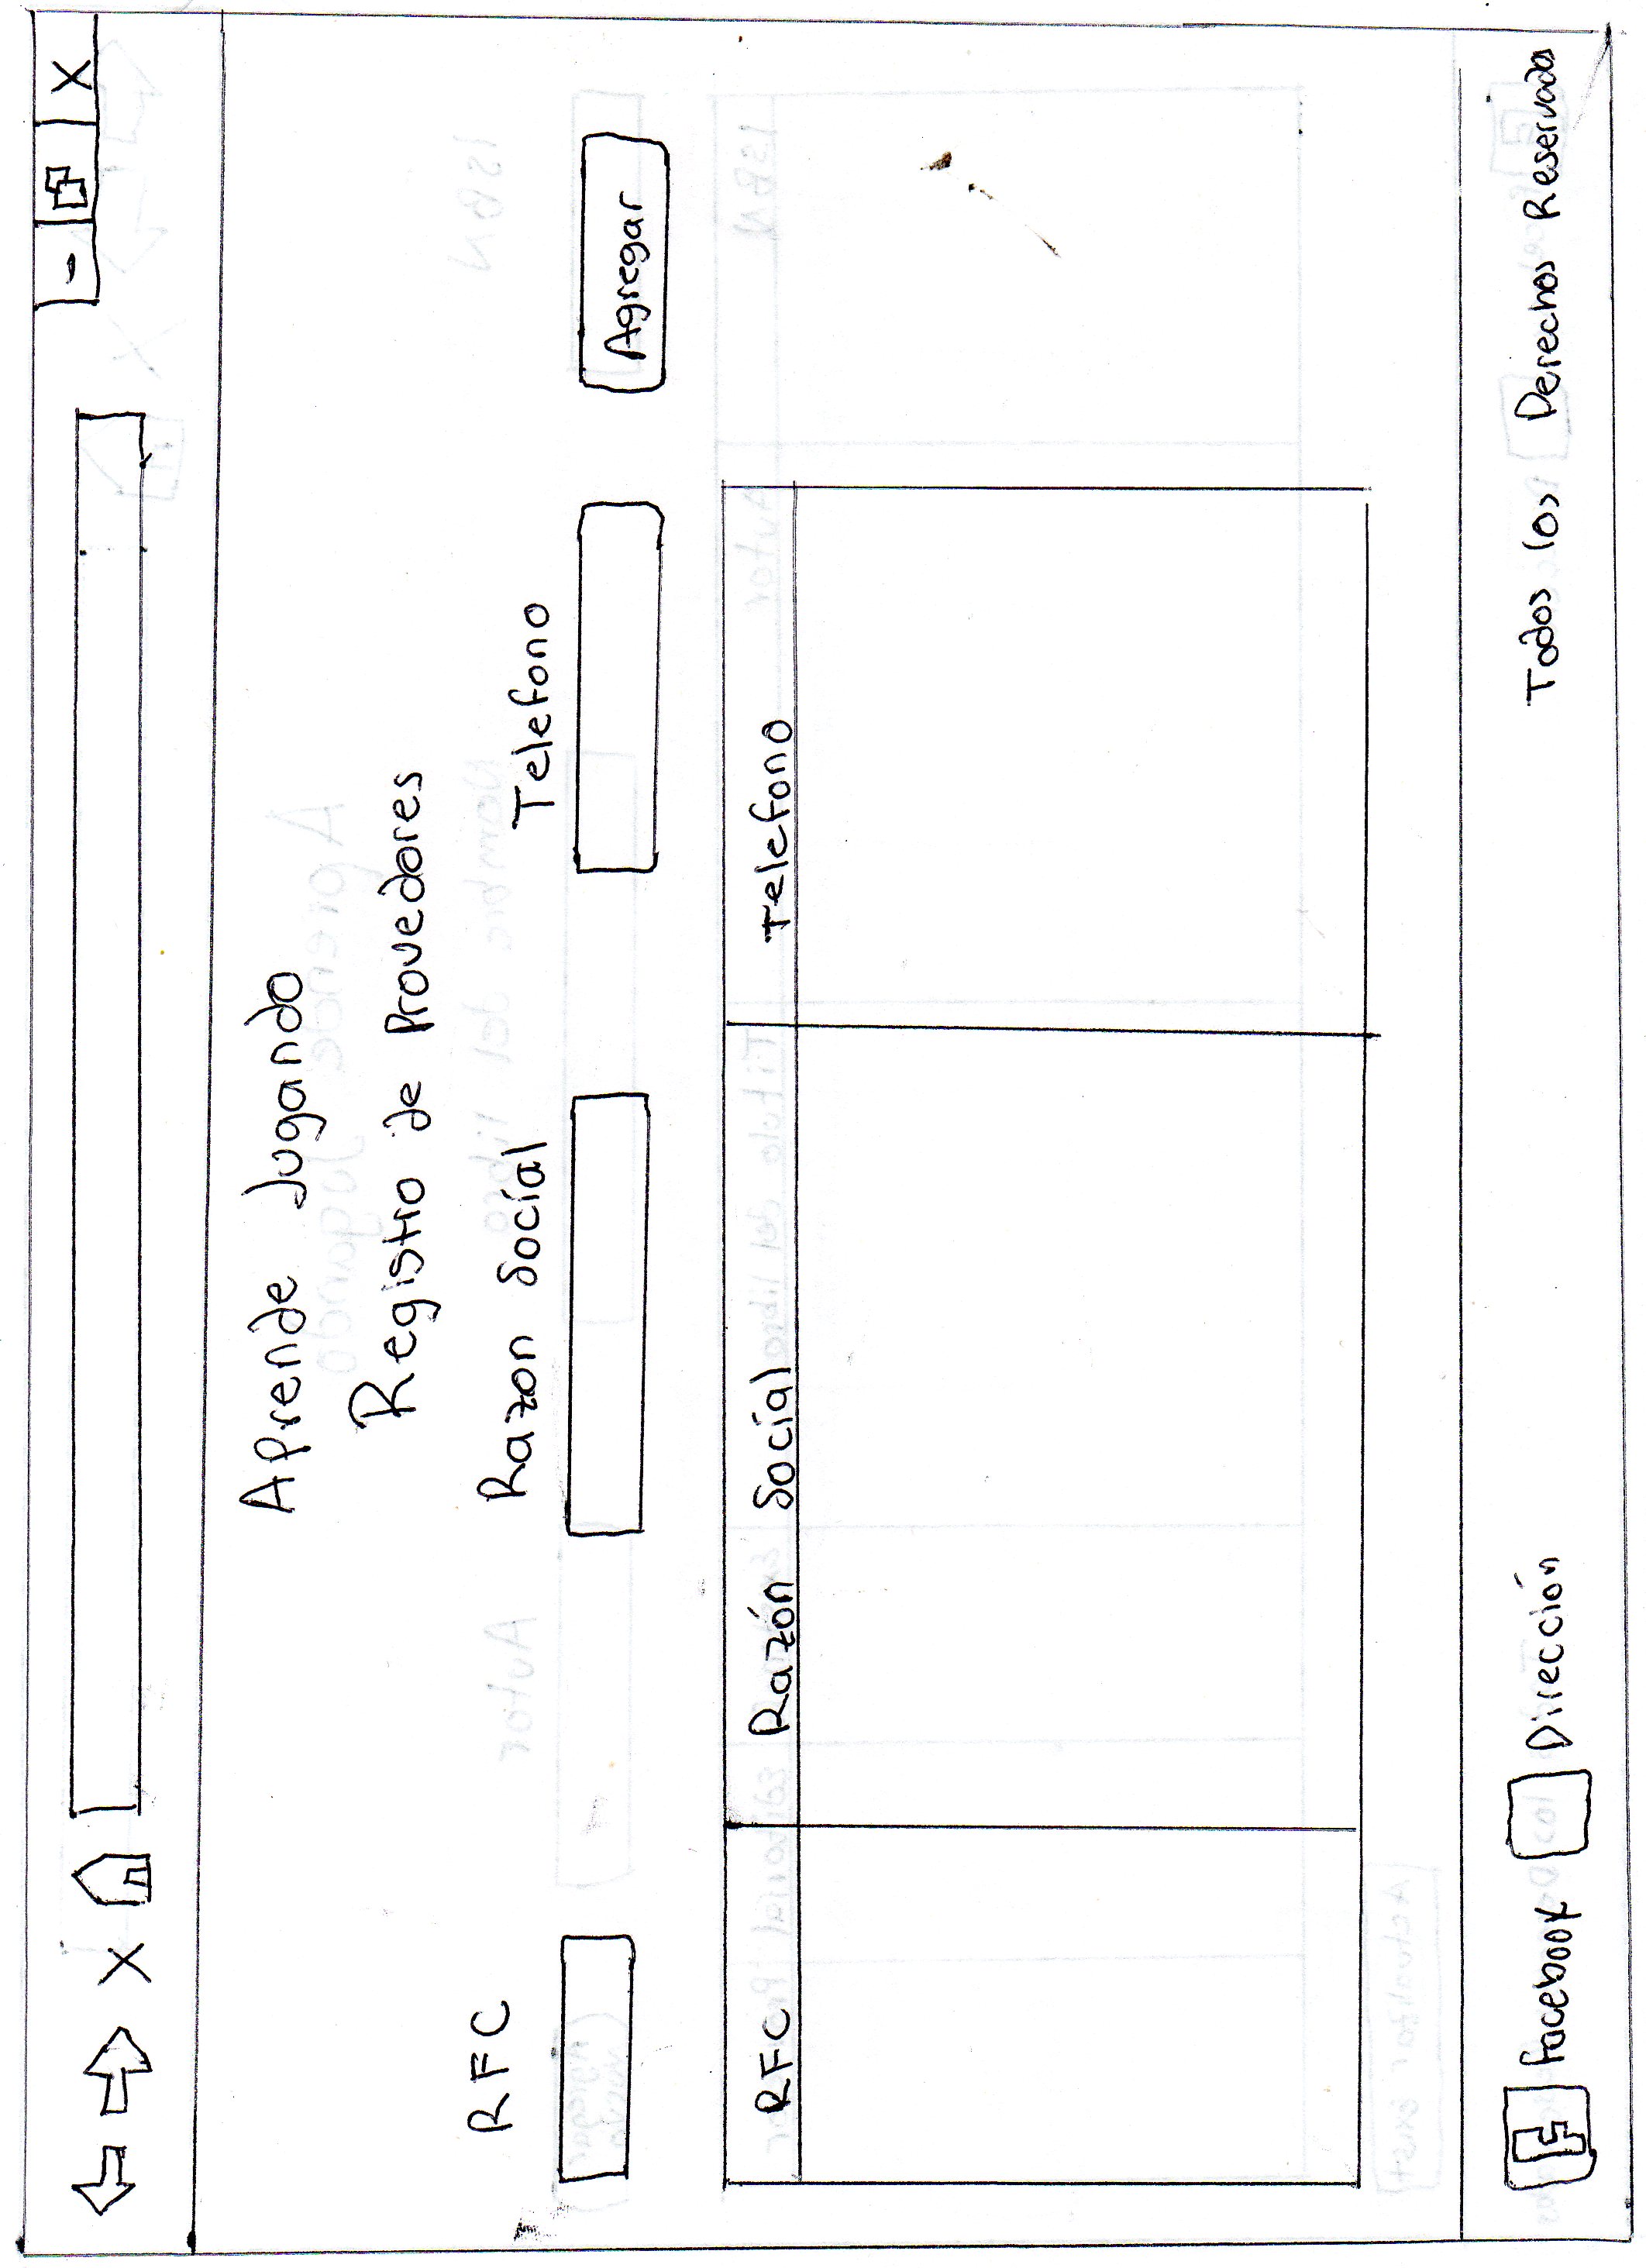 X
- X
Aprende Jugando
Registro de Provedores
RFC Razon Social Telefono
Agregar
RFC Razón Social Telefono
F facebook Dirección Todos los Derechos Reservados